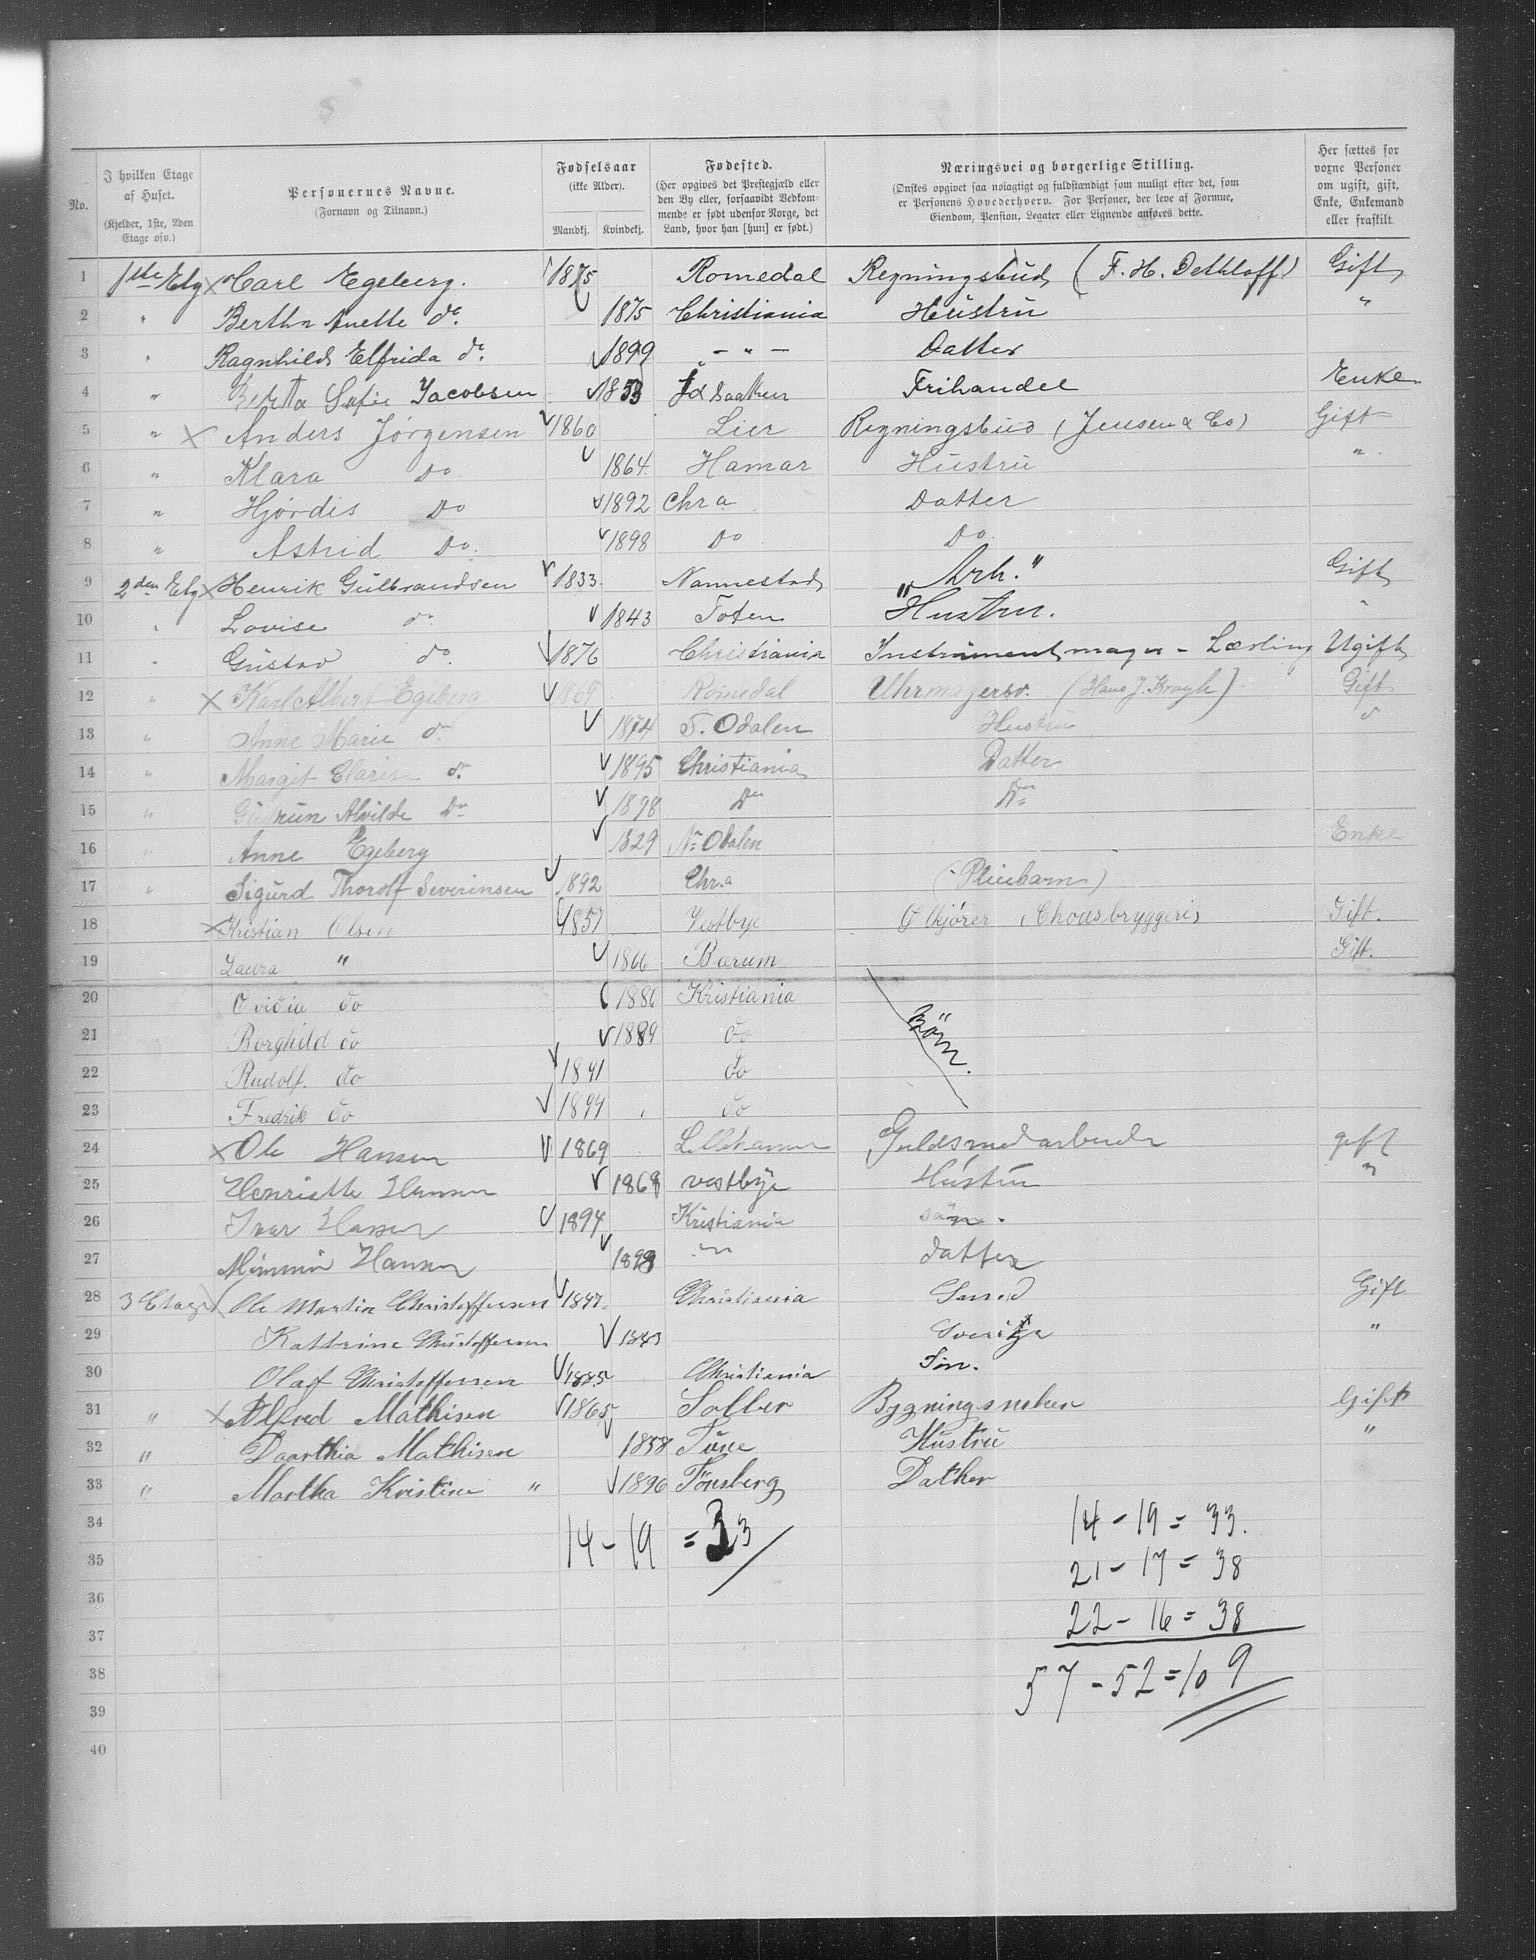 No.
I hvilken Etage af Huset.
(Kjelder, 1ste, 2den Etage osv.)
Personernes Navne.
(Fornavn og Tilnavn.)
Fødselsaar
(ikke Alder).
Mandkj. Kvindekj.
Fødested.
(Her opgives det Prestegjæld eller den By eller, forsaavidt Vedkommende er født udenfor Norge, det Land, hvor han [hun] er født.)
Næringsvei og borgerlige Stilling.
(Ønskes opgivet saa nøiagtigt og fuldstændigt som muligt efter det, som er Personens Hovederhverv. For Personer, der leve af Formue, Eiendom, Pension, Legater eller Lignende anføres dette.
Her sættes for vorne Personer om ugift, gift, Enke, Enkemand eller fraskilt.
1 1ste Etg × Carl Egeberg. 1875 Romedal Regningsbud (F. H. Dethloff) Gift
2 " Bertha Anette do. 1875 Christiania Hustru "
3 " Ragnhild Elfrida do. 1899 — " — Datter
4 " Berta Sofie Jacobsen 1853 Frihandel Enke
5 " × Anders Jørgensen 1860 Lier Regningsbud (Jensen & Co) Gift
6 " Klara Do 1864. Hamar Hustru "
7 " Hjørdis Do 1892 Chr a Datter
8 " Astrid Do. 1898 Do Do
9 2den Etg × Henrik Gulbrandsen 1833. Nannestad „Arb." Gift
10 " Lovise do 1843 Toten Hustru. "
11 " Gustav do. 1876 Christiania Instrumentmager - Lærling Ugift
12 " × Karl Albert Egeberg 1869 Romedal Uhrmagersv. (Hans J. Krogh) Gift
13 " Anne Marie do 1874 S. Odalen Hustru "
14 " Margit do. 1895 Christiania Datter
15 " Gudrun Alvilde Do 1898 Do Do
16 " Anne Egeberg 1829 N. Odalen Enke
17 " Sigurd Thorolf Severinsen 1892 Chr.a (Pleiebarn)
18 × Kristian Olsen 1857 Vestbye Ølkjører (Chousbryggeri) Gift.
19 Laura " 1866 Bærum Gift.
20 Ovidia do 1886 Kristiania
21 Borghild do 1889 do Børn.
22 Rudolf. do 1891 do
23 Fredrik do 1894 do
24 × Ole Hansen 1869 Lillehammer Guldsmedarbeider gift
25 Henriette Hansen 1868 vestbye Hustru "
26 Ivar Hansen 1894 Kristiania søn.
27 Hansen 1898 " datter
28 3 Etage × Ole Martin Christoffersen 1847. Christiania Smed Gift
29 Kathrine Christoffersen 1843 Sverige "
30 Olaf Christoffersen 1885 Christiania Søn.
31 " × Alfred Mathisen 1865 Solber Bygningsneker Gift
32 " Daarthia Mathisen 1858 Tune Hustru "
33 " Martha Kristine " 1896 Tønsberg Dather
34 14 - 19 = 33 14 - 19 = 33.
35 21 - 17 = 38
36 22 - 16 = 38
37
38 57 - 52 = 109
39
40